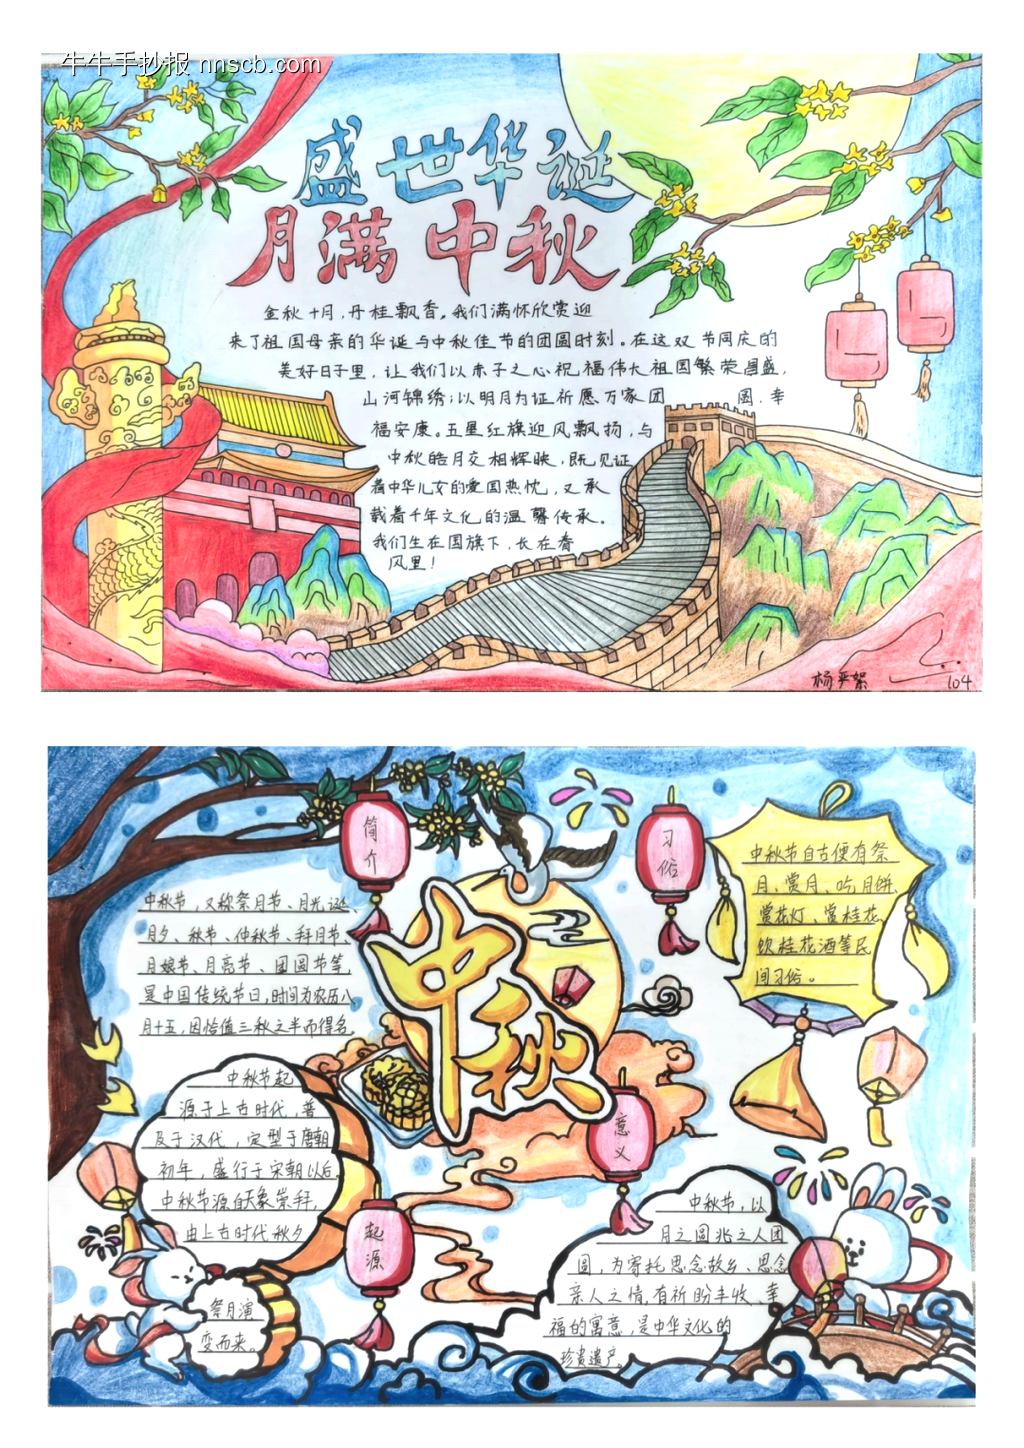 牛牛手抄报 nnscb.com
盛世华诞
月满中秋
金秋十月，丹桂飘香。我们满怀欣赏迎
来了祖国母亲的华诞与中秋佳节的团圆时刻。在这双节同庆的
美好日子里，让我们以赤子之心祝福伟大祖国繁荣昌盛，
山河锦绣；以明月为证祈愿万家团圆，幸
福安康。五星红旗迎风飘扬，与
中秋皓月交相辉映，既见证
着中华儿女的爱国热忱，又承
载着千年文化的温馨传承。
我们生在国旗下，长在春
风里！
杨严絮
104
简介
中秋节，又称祭月节、月光诞、
月夕、秋节、仲秋节、拜月节、
月娘节、月亮节、团圆节等，
是中国传统节日，时间为农历八
月十五，因恰值三秋之半而得名
习俗
中秋节自古便有祭
月、赏月、吃月饼、
赏花灯、赏桂花、
饮桂花酒等民
间习俗。
中秋
起源
中秋节起
源于上古时代，普
及于汉代，定型于唐朝
初年，盛行于宋朝以后。
中秋节源自天象崇拜，
由上古时代秋夕
祭月演
变而来。
意义
中秋节，以
月之圆兆之人团
圆，为寄托思念故乡、思念
亲人之情，有祈盼丰收、幸
福的寓意，是中华文化的
珍贵遗产。